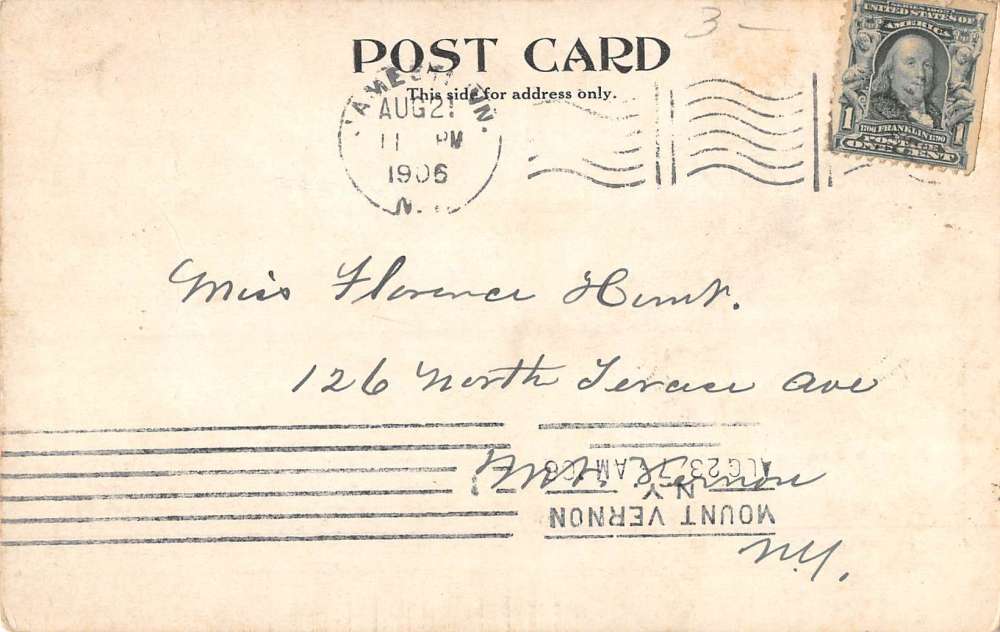 3 –
POST CARD
This side for address only.
JAMESTOWN,
AUG 21
11 PM
1906
N.Y.
SERIES 1902
UNITED STATES OF
AMERICA
1 1706 FRANKLIN 1790 1
POSTAGE
ONE CENT
Miss Florence Hunt.
126 North Terace Ave
Mt. Vernon
N.Y.
MOUNT VERNON
N.Y.
AUG 23, 7 AM '06